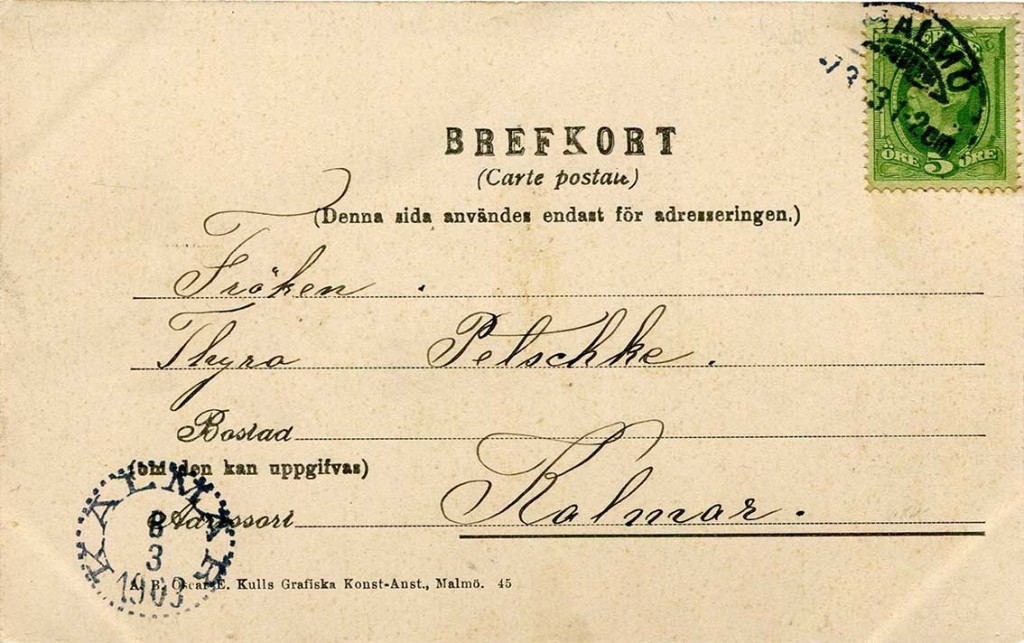 MALMÖ
ÖRE 5 ÖRE
BREFKORT
(Carte postale)
(Denna sida användes endast för adresseringen.)
Fröken.
Thyra Pelschke.
Bostad
(om den kan uppgifvas)
Kalmar.
Adressort
KALMAR
8
3
1903
A. B. Oscar E. Kulls Grafiska Konst-Anst., Malmö. 45